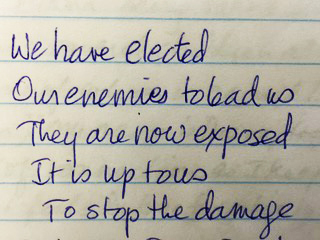 We have elected
Our enemies to lead us
They are now exposed
It is up to us
To stop the damage